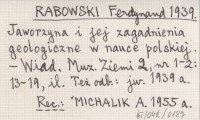 RABOWSKI Ferdynand 1939.
Jaworzyna i jej zagadnienia
geologiczne w nauce polskiej.
- Wiad. Muz. Ziemi 2, nr 1-2:
13-19, il. Też odb.: jw. 1939 a.
Rec.: MICHALIK A. 1955 a.